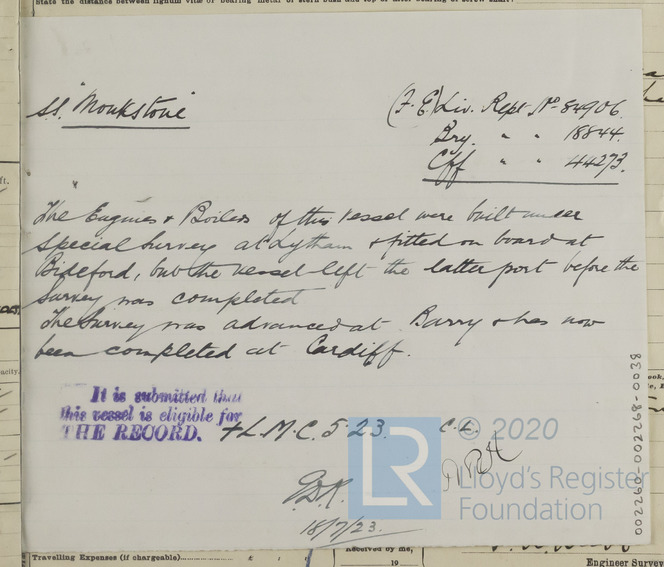 State the distance between lignum vitæ or bearing metal of stern bush and top of after bearing of screw shaft?
S.S. "Monkstone"
(F.E.) Liv. Rept. No 84906.
Bry. " " 18844.
Cff " " 44273.
The Engines & Boilers of this vessel were built under
Special Survey at Lytham & fitted on board at
Bideford, but the vessel left the latter port before the
Survey was completed
The Survey was advanced at Barry & has now
been completed at Cardiff.
It is submitted that
this vessel is eligible for
THE RECORD. + L.M.C. 5.23. C.L.
18/7/23.
LR
© 2020
Lloyd's Register
Foundation
002260-002268-0038
Travelling Expenses (if chargeable) £ :
Received by me,
19
Engineer Survey